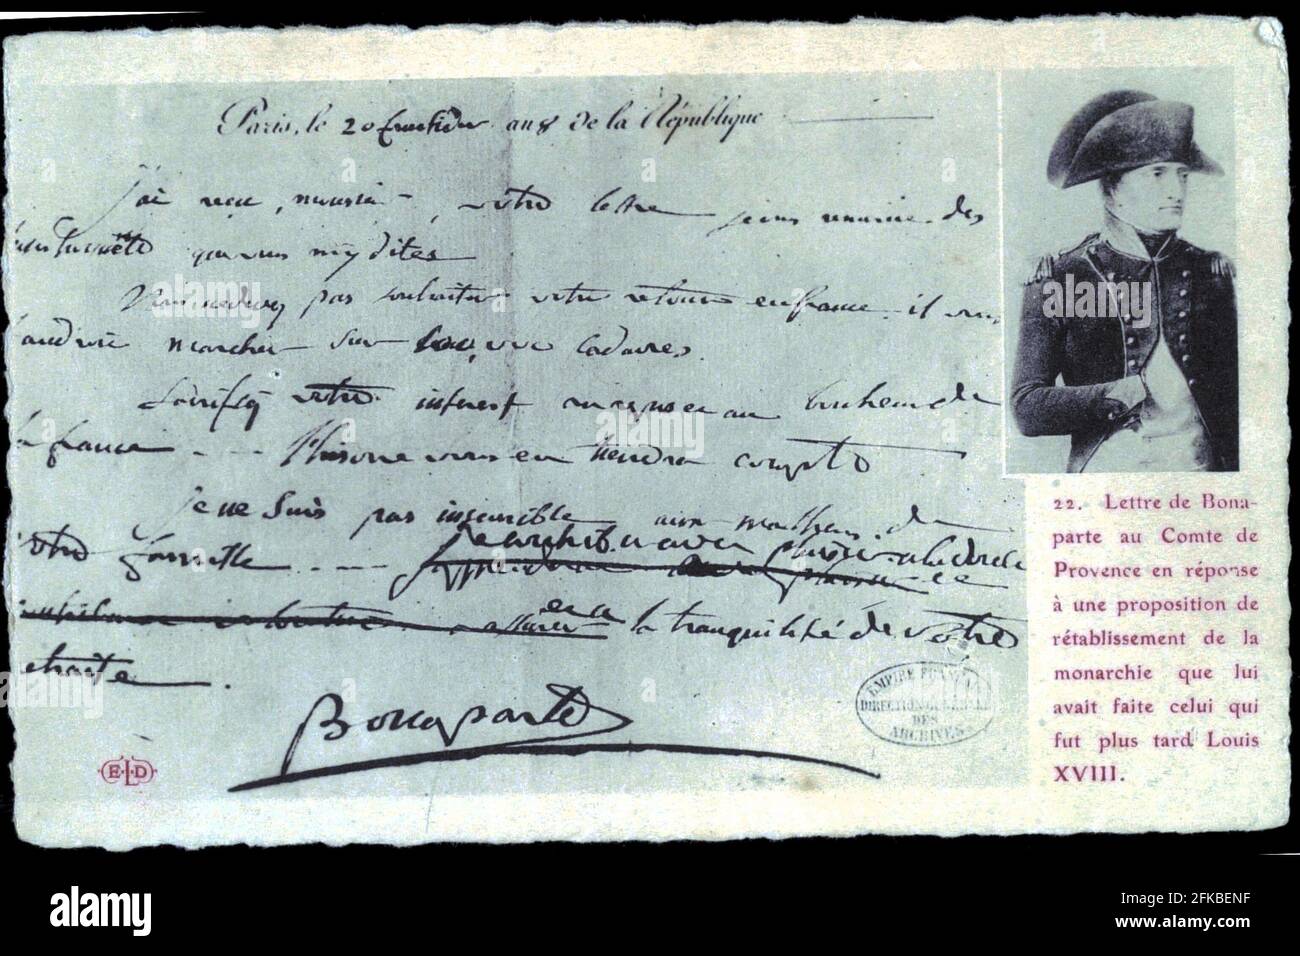 Paris, le 20 fructidor an 8 de la République
J'ai reçu, monsieur, votre lettre je vous remercie des
honnêtes que vous m'y dites
Vous ne devez pas souhaiter votre retour en france. il vous
faudroit marcher sur 100,000 cadavres.
Sacrifiez votre interest au repos et au bonheur de
la france . . . l'histoire vous en tiendra compte
je ne suis pas insensible aux malheurs de
votre famille . . . .
je contribuerai avec plaisir à la
assurer la tranquilité de votre
retraite.
Bonaparte
EMPIRE FRANÇAIS
DIRECTION GÉNÉRALE
DES
ARCHIVES
ELD
22. Lettre de Bona-
parte au Comte de
Provence en réponse
à une proposition de
rétablissement de la
monarchie que lui
avait faite celui qui
fut plus tard Louis
XVIII.
alamy
Image ID: 2FKBENF
www.alamy.com